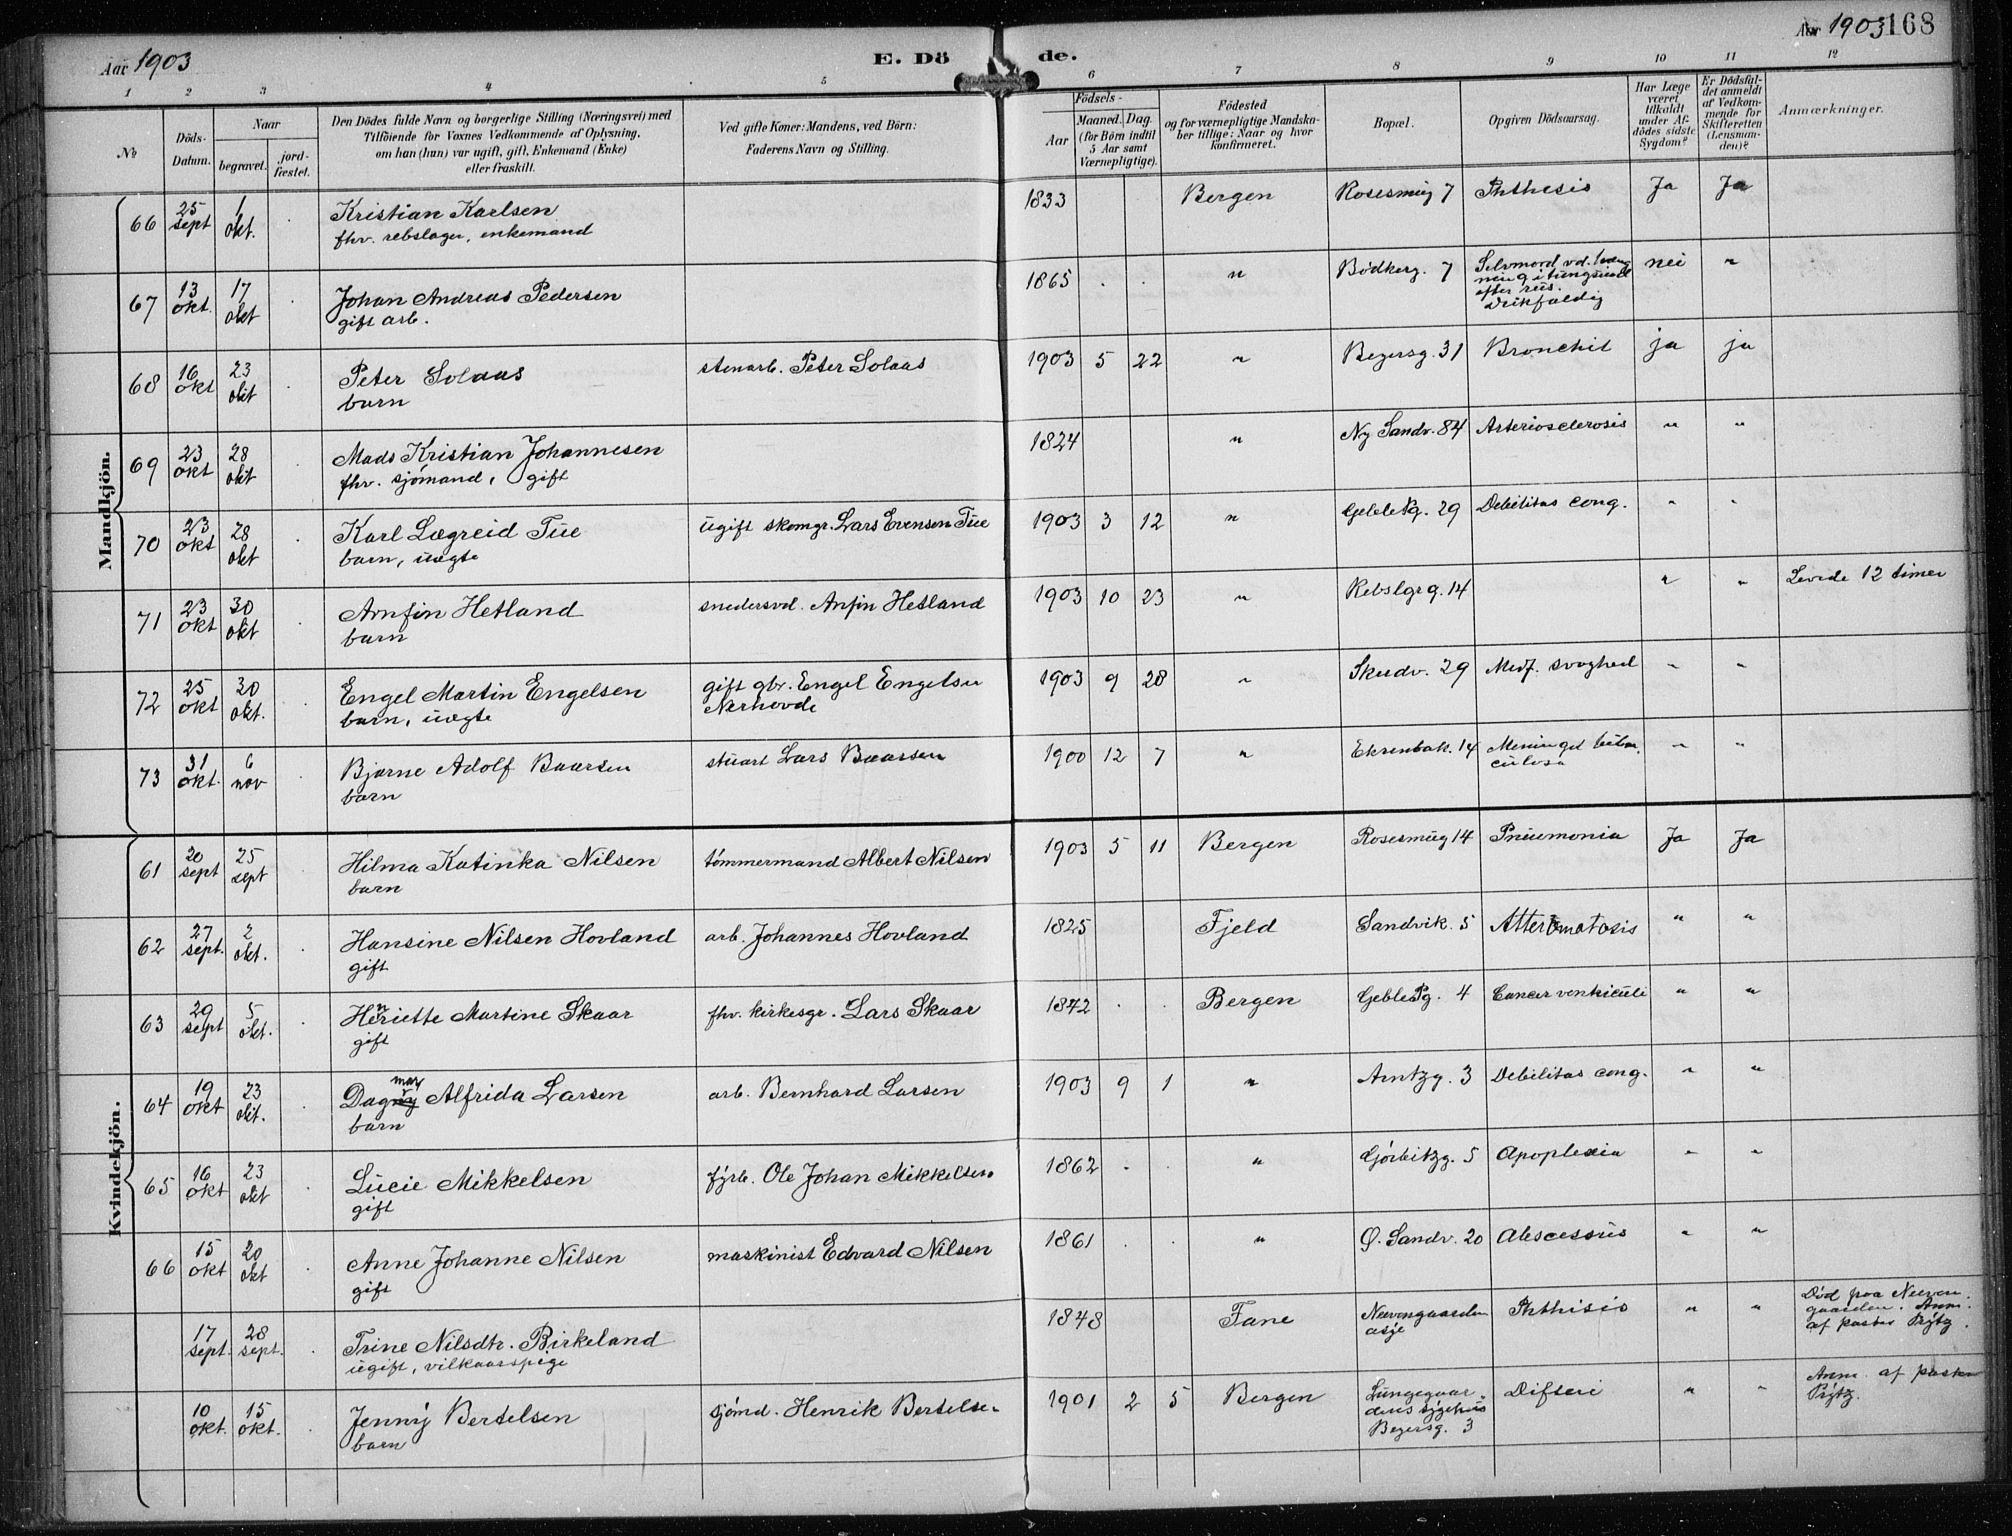 Aar 1903
E. Dö de.
Aar 1903 168
1 2 3 4 5 6 7 8 9 10 11 12
№
Döds-Datum.
Naar
begravet.
jord-fæstet.
Den Dödes fulde Navn og borgerlige Stilling (Næringsvei) med
Tilföiende for Voxnes Vedkommende af Oplysning,
om han (hun) var ugift, gift, Enkemand (Enke)
eller fraskilt.
Ved gifte Koner: Mandens, ved Börn:
Faderens Navn og Stilling.
Födsels-
Aar
Maaned. Dag.
(for Börn indtil
5 Aar samt
Værnepligtige).
Födested
og for værnepligtige Mandska-
ber tillige: Naar og hvor
konfirmeret.
Bopæl.
Opgiven Dödsaarsag.
Har Læge
været
tilkaldt
under Af-
dödes sidste
Sygdom?
Er Dödsfal-
det anmeldt
af Vedkom-
mende for
Skifteretten
(Lensman-
den)?
Anmærkninger.
Mandkjön.
66 25 sept 1 okt. Kristian Karlsen 1833 Bergen Rosesmug 7 Phthesis Ja Ja
fhv. rebslager, enkemand
67 13 okt. 17 okt Johan Andreas Pedersen 1865 " Bødkerg. 7 Selvmord vd. hæng
ning i tungsind
efter rus.
Drikfældig nei "
gift arb.
68 16 okt 23 okt Peter Solaas stenarb. Peter Solaas 1903 5 22 " Beyersg. 31 Bronchit ja ja
barn
69 23 okt 28 okt Mads Kristian Johannesen 1824 " Ny Sandv. 84 Arteriosclerosis " "
fhv. sjømand, gift
70 23 okt 28 okt Karl Lægreid Tue ugift skomgr. Lars Evensen Tue 1903 3 12 " Geblepg. 29 Debilitas cong. " "
barn, uægte
71 23 okt 30 okt Arnfin Hetland snedersvd. Anfin Hetland 1903 10 23 " Rebslgrg. 14 " " Levede 12 timer
barn
72 25 okt 30 okt. Engel Martin Engelsen gift gbr. Engel Engelsen
Nerhovde 1903 9 28 " Skudv. 29 Medf. svaghed " "
barn, uægte
73 31 okt. 6 nov Bjarne Adolf Baarsen stuart Lars Baarsen 1900 12 7 " Ekrenbak. 14 Meningel tuber
culosa " "
barn
Kvindekjön.
61 20 sept 25 sept Hilma Katinka Nilsen tømmermand Albert Nilsen 1903 5 11 Bergen Rosesmug 14 Pneumonia Ja Ja
barn
62 27 sept. 2 okt. Hansine Nilsen Hovland arb. Johannes Hovland 1825 Fjeld Sandvik. 5 Atteromatosis " "
gift
63 29 sept 5 okt. Henriette Martine Skaar fhv. kirkesgr. Lars Skaar 1842 Bergen Geblepg. 4 Cancer ventriculi " "
gift
64 19 okt 23 okt. Dagmar Alfrida Larsen arb. Bernhard Larsen 1903 9 1 " Arntzg. 3 Debilitas cong. " "
barn
65 16 okt 23 okt Lucie Mikkelsen fyrb. Ole Johan Mikkelsen 1862 " Gørbitzg. 5 Apoplexia " "
gift
66 15 okt 20 okt Anne Johanne Nilsen maskinist Edvard Nilsen 1861 " Ø. Sandv. 20 Abscessus " "
gift
17 sept. 28 sept. Trine Nilsdtr. Birkeland 1848 Fane Neevengaarden
asje Phthisis " " Død paa Neeven
gaarden. Anm.
af pastor Prytz.
ugift, vilkaarspige
10 okt. 15 okt. Jenny Bertelsen sjømd. Henrik Bertelsen 1901 2 5 Bergen Lungegaar
dens sygehus
Beyersg. 3 Difteri " " Anm. af pastor
Prytz.
barn